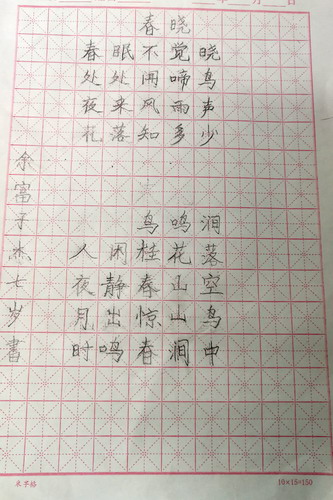 年 月 日
春晓
春眠不觉晓
处处闻啼鸟
夜来风雨声
花落知多少
鸟鸣涧
人闲桂花落
夜静春山空
月出惊山鸟
时鸣春涧中
余富子杰七岁書
米字格
10×15=150